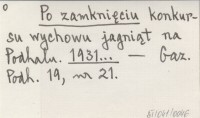 Po zamknięciu konkur-
su wychowu jagniąt na
Podhalu. 1931... — Gaz.
Podh. 19, nr 21.